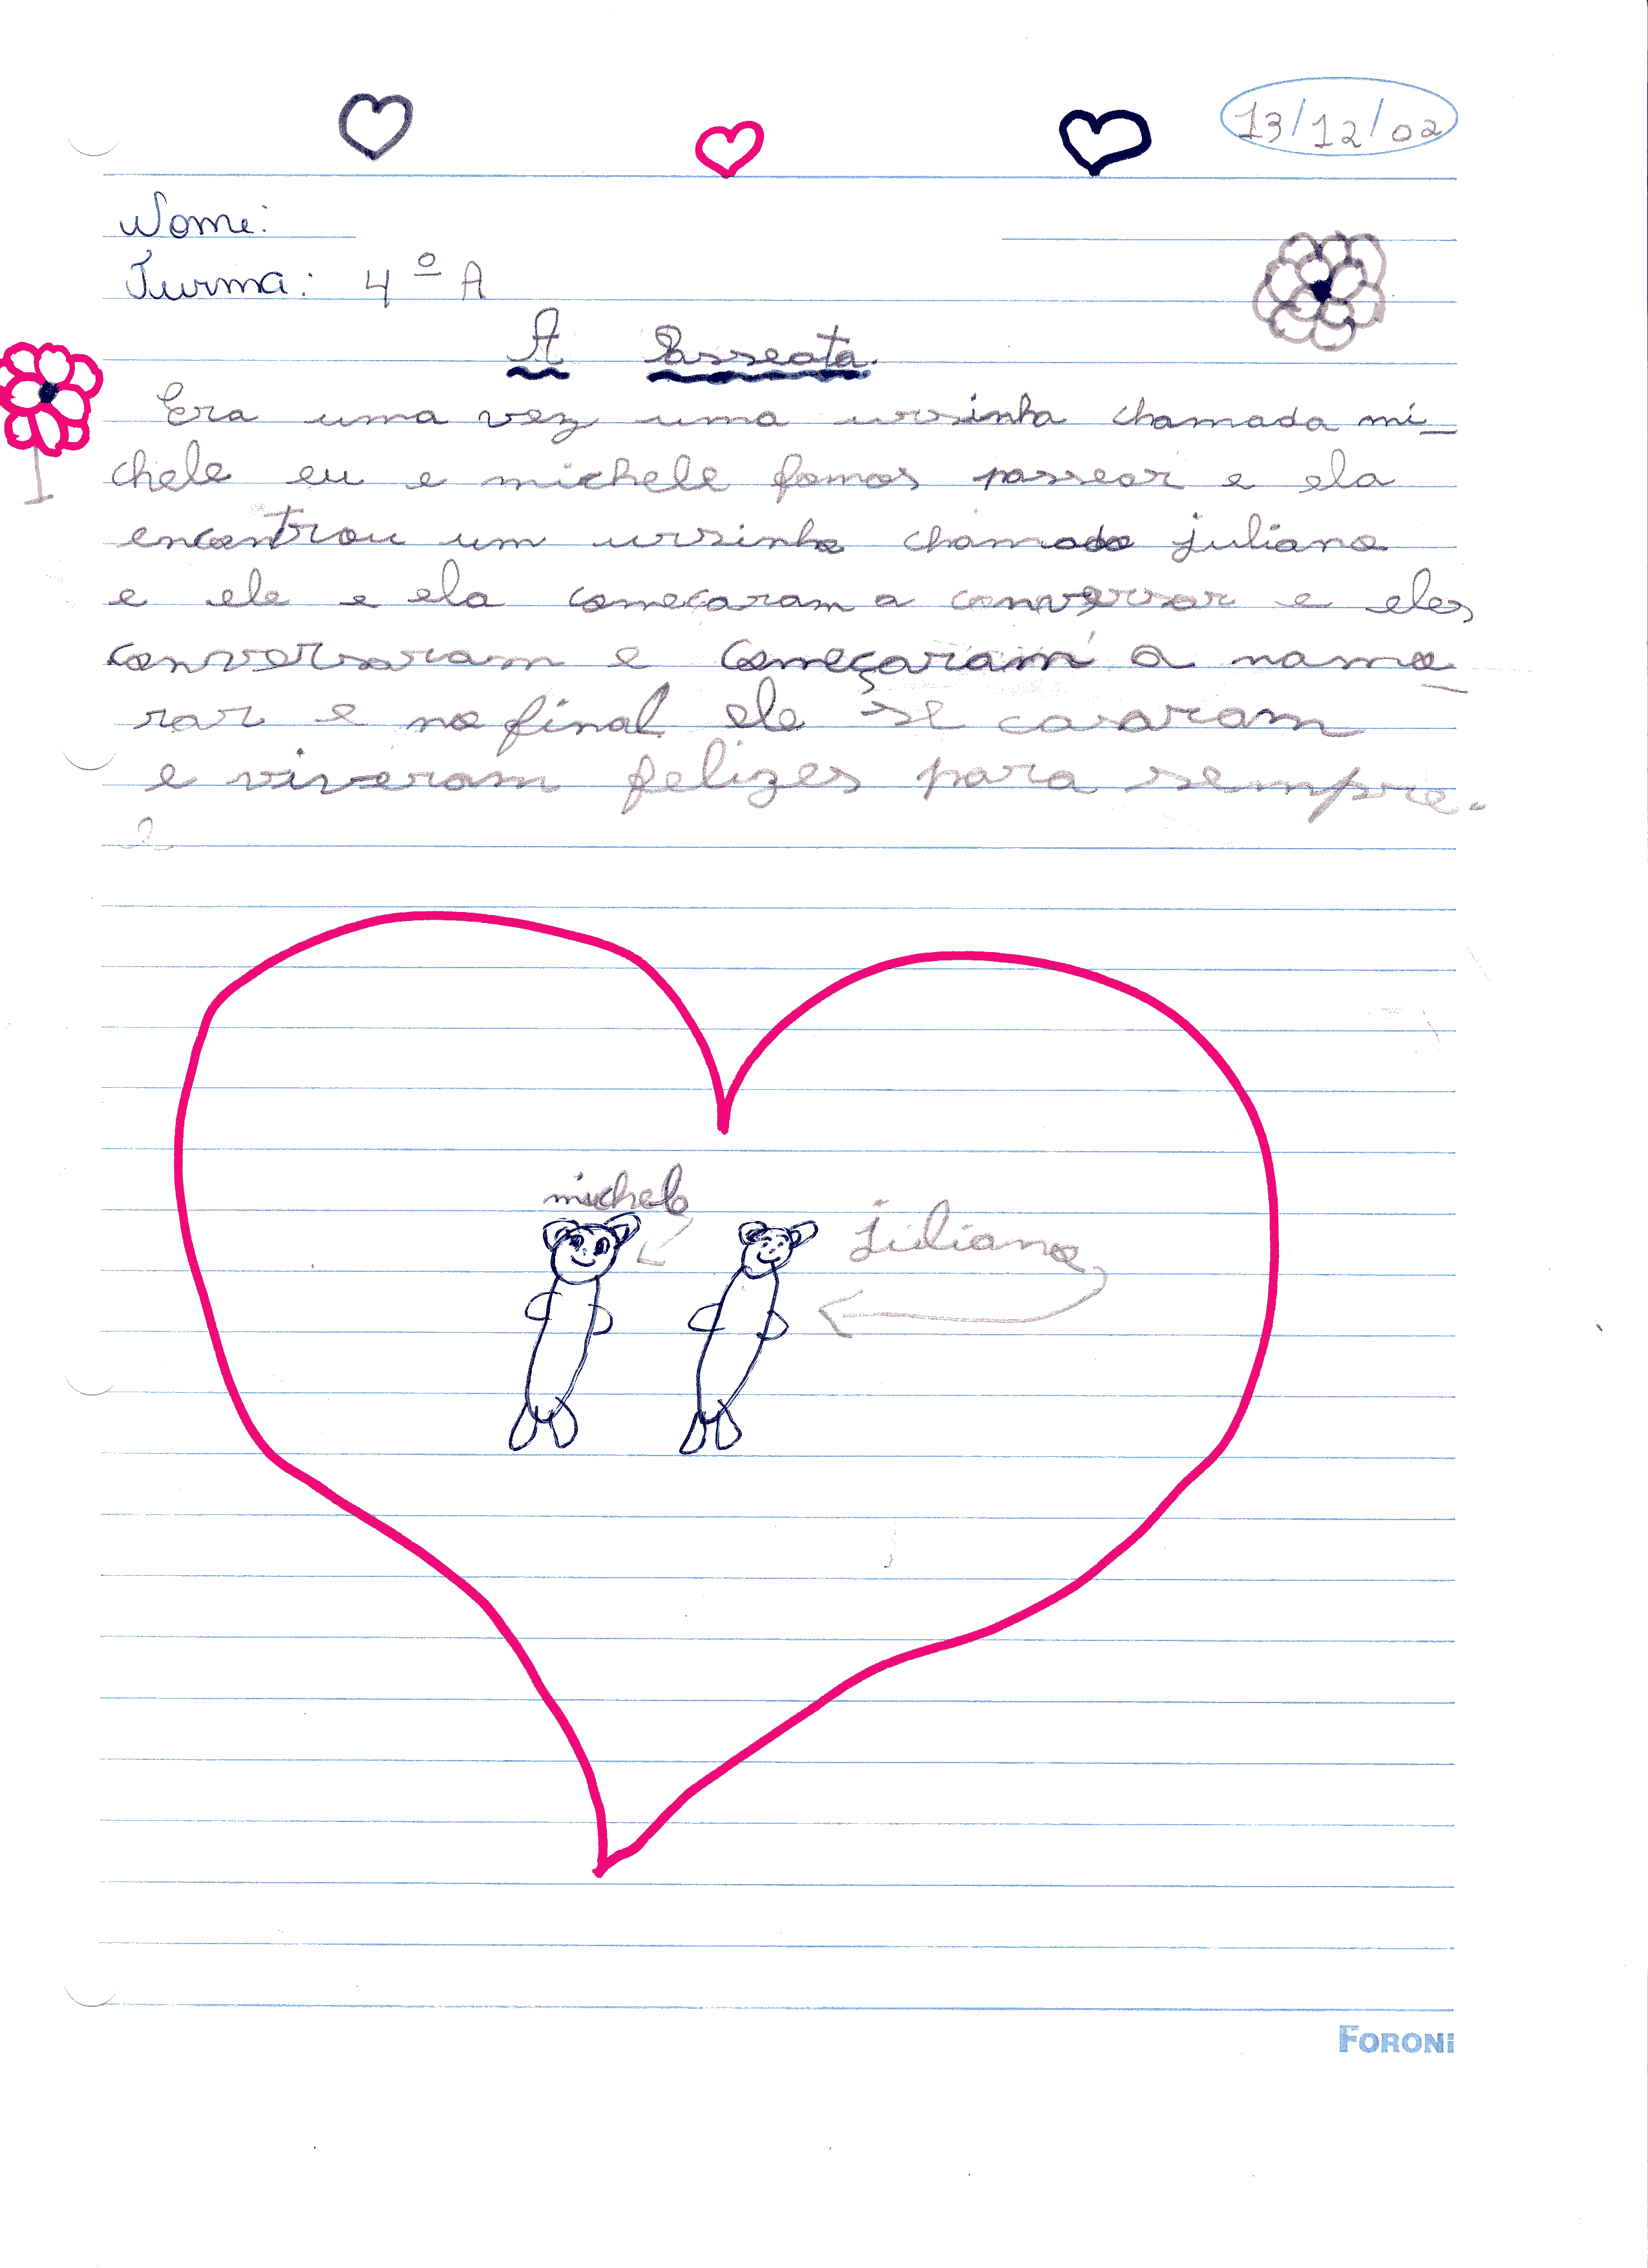 13/12/02
Nome:
Turma: 4º A
A Passeata.
Era uma vez uma ursinha chamada mi_
chele eu e michele fomos passear e ela
encontrou um ursinho chamado juliano
e ele e ela começaram a conversar e eles
conversaram e começaram a namo_
rar e no final ele se casaram
e viveram felizes para sempre.
michele
juliano
FORONI